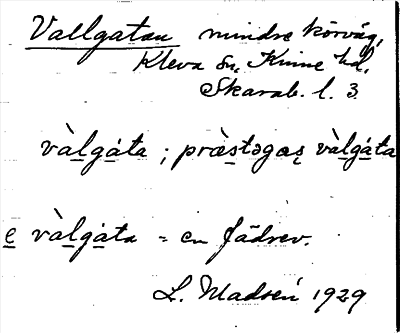 Vallgatan mindre körväg,
Kleva sn. Kinne hd.
Skarab. l. 3.
vàlgáta ; præ̀stəgas̨ vàlgáta
e vàlgáta = en fädrev.
L. Madsén 1929